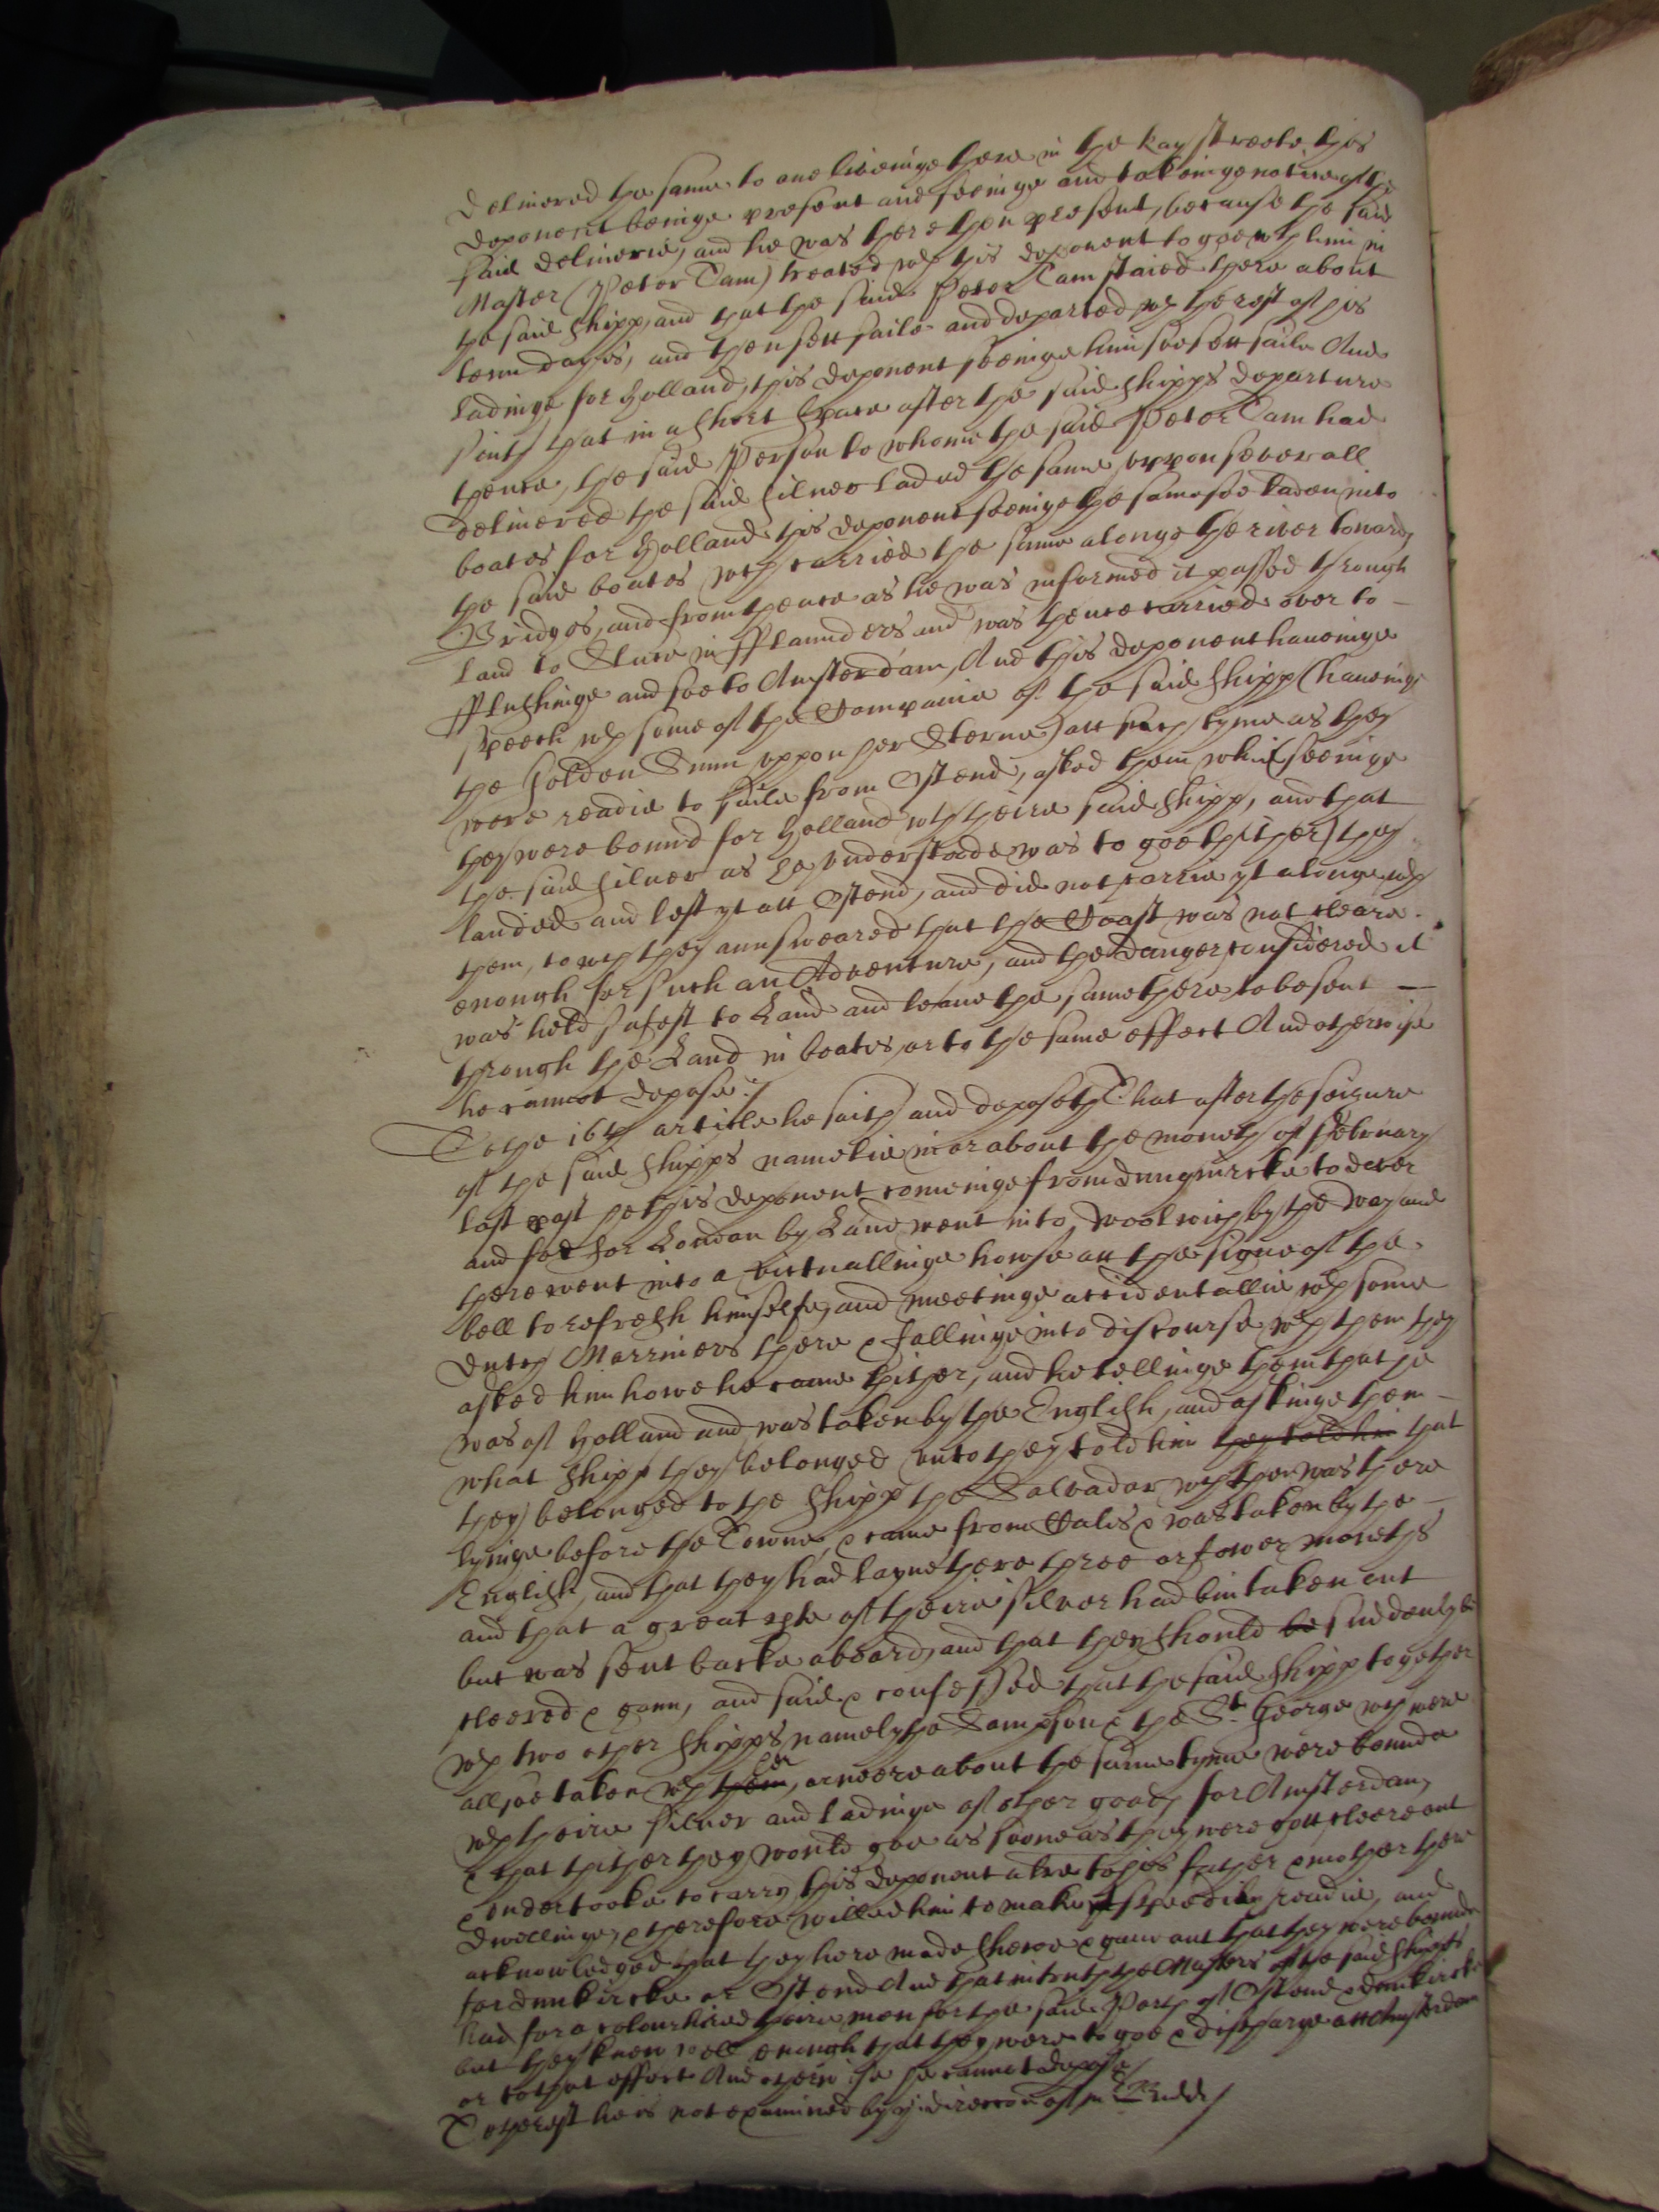 delivered the same to one liveinge there in the kay streete this
deponent beinge present and seeinge and takeinge notice of the
said deliverie, and he was there then present, because the said
Master (Peter Dam) treated wth this deponent to goe wth him in
the said shipp, and that the said Peter Dam staied there about
tenn dayes, and then sett saile and departed wth the rest of his
ladinge for Holland, this deponent seeinge him soe sett saile And
saith that in a short space after the said shipps departure
thence, the said Person to whome the said Peter Dam had
delivered the said silver laded the same uppon severall
boates for Holland this deponent seeinge the same soe laden into
the said boates wch carried the same alonge the river towards
Bridges, and from thence as he was informed it passed through
land to Sluce in fflaunders and was thence carried over to
fflushinge and soe to Amsterdam, And this deponent haveinge
speech wth some of the Companie of the said shipp (haveinge
the Golden Sunn uppon her Sterne) att such tyme as they
were readie to saile from Ostend, asked them whie (seeinge
they were bound for Holland wth theire said shipp, and that
the said silver as he understoode was to goe thither) they
landed and left yt att Ostend, and did not carrie yt alonge wth
them, to wch they aunsweared that the Coast was not cleare
enough for such an Adventure, and the danger considered it
was held safest to Land and leave the same there to be sent
through the Land in boates, or to the same effect And otherwise
he cannot depose./
To the 16th article he saith and deposeth That after the seizure
of the said shipps namelie in or about the moneth of ffebruary
last past he this deponent comeinge from dunquircke to dover
and soe for London by Land went into Woolwich by the way and
there went into a victuallinge howse att the signe of the
bell to refresh himselfe, and meetinge accidentallie wth some
dutch Marriners there & fallinge into discourse wth them they
asked him howe he came thither, and he tellinge them that he
was of Holland and was taken by the English, and askinge them
what shipp they belonged unto they told him they told him that
they belonged to the shipp the Salvador wch then was there
lyinge before the Towne, & came from Cales & was taken by the
English, and that they had layne there three or fower moneths
and that a great pte of theire silver had bin taken out
but was sent backe aboard, and that they should be suddenly be
cleered & gonn, and said & confessed that the said shipp together
wth two other shipps namely the Sampson & the St. George wch were
allsoe taken wth them her, or neere about the same tyme were bounde
wth theire silver and ladinge of other goods for Amsterdam,
& that thither they would goe as soone as they were gott cleere out
& undertooke to carry this deponent a lre to his father & mother there
dwellinge, & therefore willed him to make it speedily readie, and
acknowledged that they here made shewe & gave out that they were bounde
for dunkircke or Ostend And that in truth the Masters of the said shipps
had for a colour hired theire men for the said Ports of Ostend & dunkircke
but they knew well enough that they were to goe & discharge att Amsterdam
or to that effect And otherwise he cannot depose/
To the rest he is not examined by ye direccon of mr Budd/